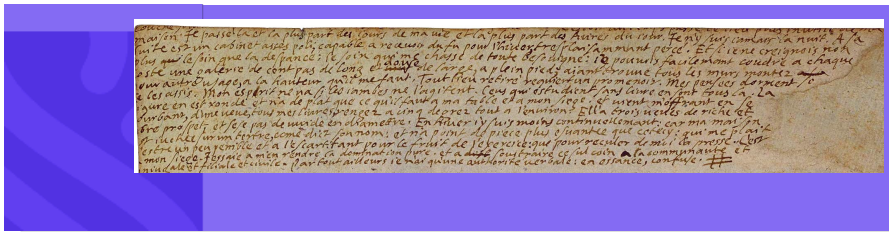 maison. Je passe la et la plus part des jours de ma vie et la plus part des heures du jour. Je n'y suis iamais la nuit. A sa
suite est un cabinet asses poli, capable a recevoir du fu pour l'hiver tresplaisammant percé. Et si ie ne creignois non
plus que le soin que la despance: le soin qui me chasse de toute besouigne: ie pouvois facilemant coudre a chaque
costé une galerie de cent pas de long et douze de large, a plein pied: aiant trouvé tous les murs montez
pour autre usage, a la hauteur qu'il me faut. Tout lieu retiré requiert un promenoir. Mes pensees dorment, si
ie les assis. Mon esprit ne va si les iambes ne l'agitent. Ceus qui estudient sans livre en ont tous là. La
figure en est ronde et n'a de plat que ce qu'il faut a ma table et a mon siege: et vient m'offrant en se
courbant, d'une veue, tous mes livres rengez a cinq degrez tout a l'environ. Ell'a trois veues de riche et
libre prospect, et sese pas de vuide en diametre. En hiver i'y suis moins continuellemant: car ma maison
est iuchee sur un tertre, come dict son nom: et n'a point de piece plus esvantee que cetecy: qui me plait
d'estre un peu penible et a l'escart, tant pour le fruit de l'exercice que pour reculer de moi la presse. C'est
la mon siege. J'essaie a m'en rendre la domination pure: et a soustraire ce sul coin a la communauté et
coniugale et filiale et civile. Par tout ailleurs ie n'ai qu'une authorité verbale: en essance, confuse.